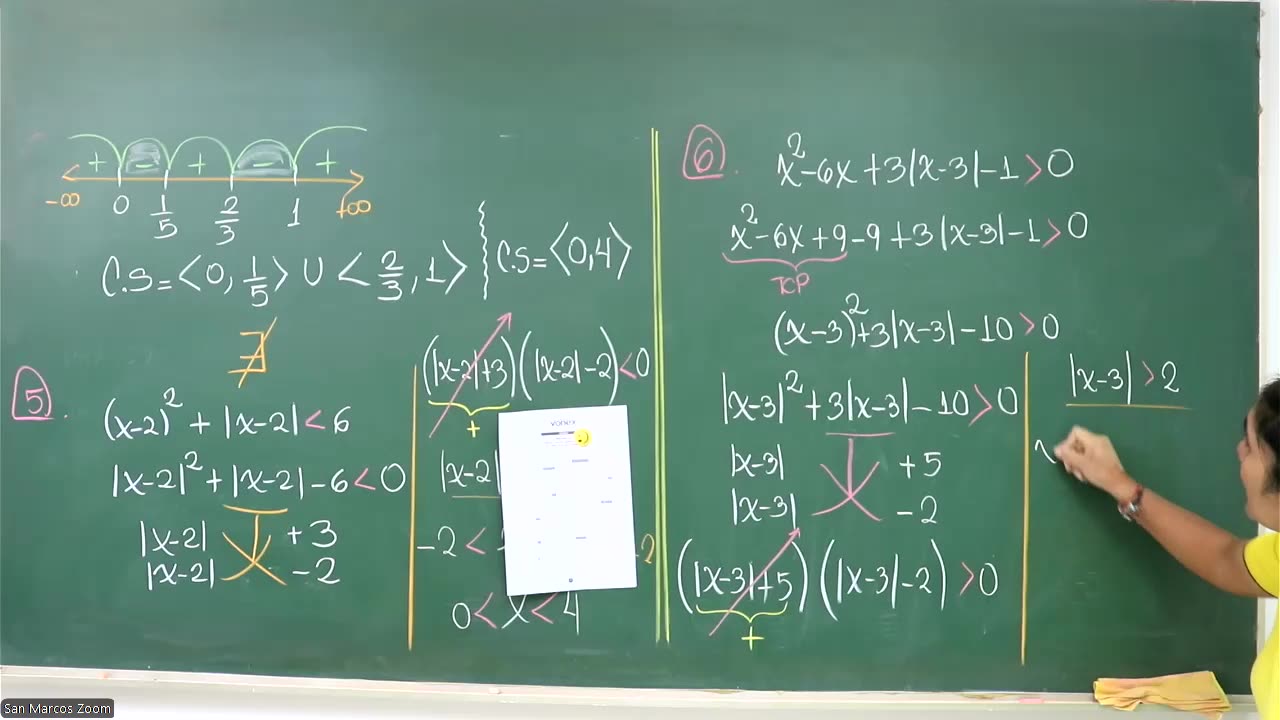 + - + - +
-∞ 0 1/5 2/3 1 +∞
C.S=⟨0, 1/5⟩ ∪ ⟨2/3, 1⟩
C.S=⟨0,4⟩
∄
5.
(x-2)² + |x-2| < 6
|x-2|² + |x-2| - 6 < 0
|x-2| + 3
|x-2| - 2
(|x-2|+3)(|x-2|-2) < 0
+
|x-2|
-2 <
2
0 < x < 4
vonex
6.
x²-6x+3|x-3|-1>0
x²-6x+9-9+3|x-3|-1>0
TCP
(x-3)²+3|x-3|-10>0
|x-3|²+3|x-3|-10>0
|x-3| +5
|x-3| -2
(|x-3|+5)(|x-3|-2)>0
+
|x-3|>2
San Marcos Zoom